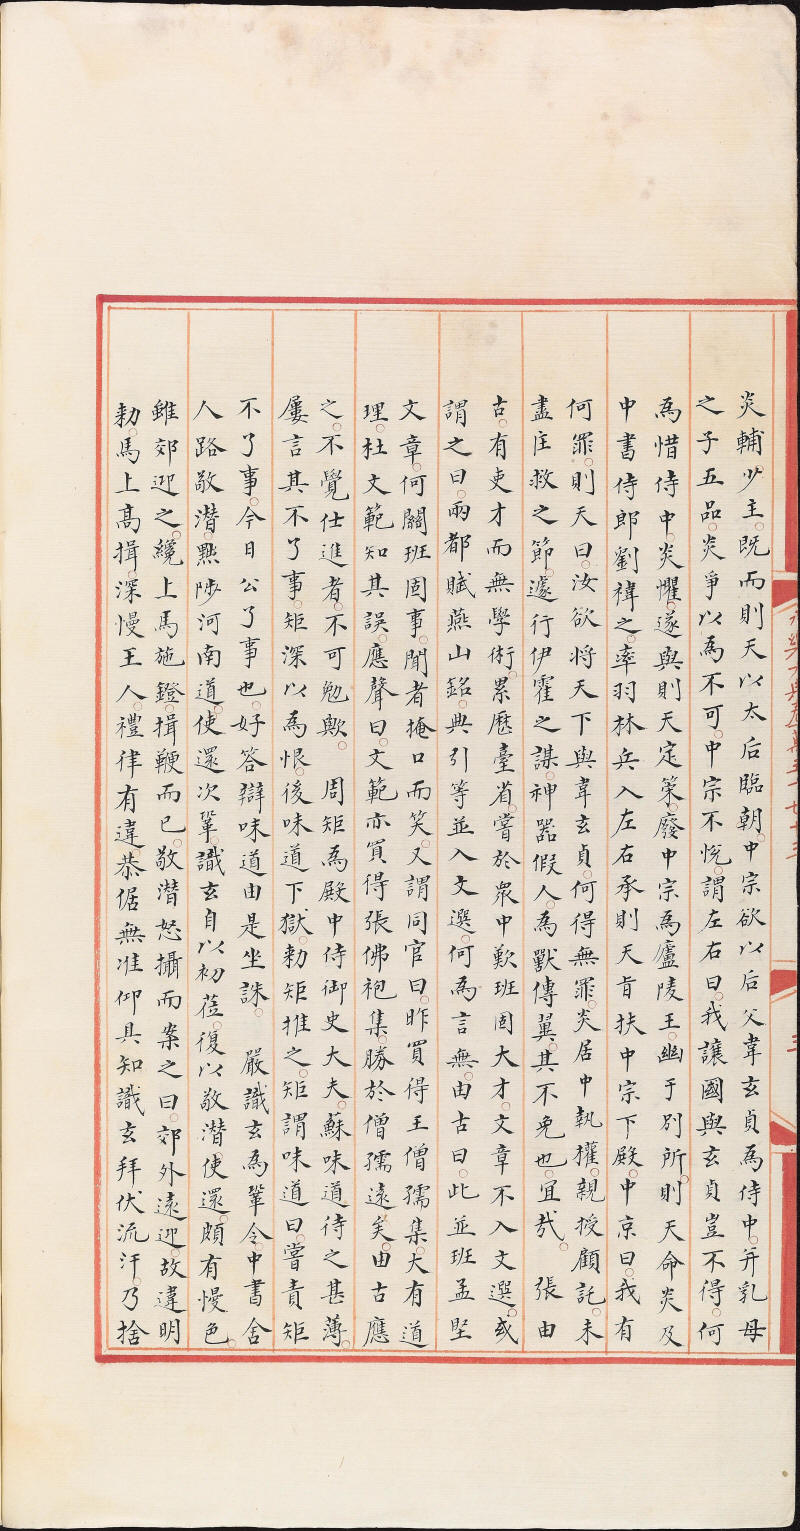 炎輔少主。既而則天以太后臨朝。中宗欲以后父韋玄貞為侍中。并乳母
之子五品。炎爭以為不可。中宗不悅。謂左右曰。我讓國與玄貞豈不得。何
為惜侍中。炎懼。遂與則天定策。廢中宗為廬陵王。幽于別所。則天命炎及
中書侍郎劉禕之。率羽林兵入左右承則天旨扶中宗下殿。中京曰。我有
何罪。則天曰。汝欲將天下與韋玄貞。何得無罪。炎居中執權。親授顧託。未
盡匡救之節。遽行伊霍之謀。神器假人。為獸傅翼。其不免也。宜哉。 張由
古。有吏才而無學術。累歷臺省。嘗於衆中歎班固大才。文章不入文選。或
謂之曰。兩都賦燕山銘。典引等並入文選。何為言無。由古曰。此並班孟堅
文章。何關班固事。聞者掩口而笑。又謂同官曰。昨買得王僧孺集。大有道
理。杜文範知其誤。應聲曰。文範亦買得張佛袍集。勝於僧孺遠矣。由古應
之。不覺仕進者。不可勉歟。 周矩為殿中侍御史大夫。蘇味道待之甚薄。
屢言其不了事。矩深以為恨。後味道下獄。勑矩推之。矩謂味道曰。嘗責矩
不了事。今日公了事也。好答辯味道由是坐誅。 嚴識玄為鞏令。中書舍
人路敬潛。黜陟河南道。使還次鞏。識玄自以初莅。復以敬潛使還。頗有慢色。
雖郊迎之。纔上馬施鐙。揖鞭而已。敬潛怒攝而案之曰。郊外遠迎。故違明
勑。馬上高揖。深慢王人。禮律有違。恭倨無准。仰具知識玄拜伏流汗。乃捨